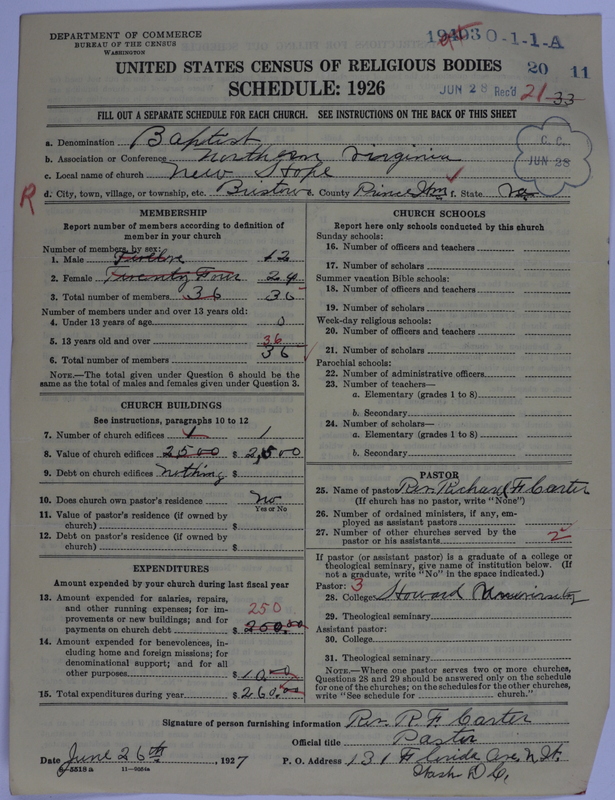 DEPARTMENT OF COMMERCE
BUREAU OF THE CENSUS
WASHINGTON
0-1-1-A
UNITED STATES CENSUS OF RELIGIOUS BODIES
20 11
SCHEDULE: 1926
JUN 28 Rec'd 21 33
FILL OUT A SEPARATE SCHEDULE FOR EACH CHURCH. SEE INSTRUCTIONS ON THE BACK OF THIS SHEET
a. Denomination Baptist
b. Association or Conference Northern Virginia
c. Local name of church New Hope
C. C.
JUN 28
R
d. City, town, village, or township, etc. c. County Prince Wm f. State Va
MEMBERSHIP
Report number of members according to definition of
member in your church
Number of members, by sex:
1. Male Twelve 12
2. Female Twenty Four 24
3. Total number of members 36 36
Number of members under and over 13 years old:
4. Under 13 years of age 0
5. 13 years old and over 36
6. Total number of members 36
NOTE.—The total given under Question 6 should be
same as the total of males and females given under Question 3.
CHURCH BUILDINGS
See instructions, paragraphs 10 to 12
7. Number of church edifices 1 1
8. Value of church edifices 2500 $ 2,500
9. Debt on church edifices nothing $
10. Does church own pastor's residence No
Yes or No
11. Value of pastor's residence (if owned by
church) $
12. Debt on pastor's residence (if owned by
church) $
EXPENDITURES
Amount expended by your church during last fiscal year
13. Amount expended for salaries, repairs,
and other running expenses; for im-
provements or new buildings; and for
payments on church debt $ 250.00
250
14. Amount expended for benevolences, in-
cluding home and foreign missions; for
denominational support; and for all
other purposes $ 10.00
15. Total expenditures during year $ 260.00
CHURCH SCHOOLS
Report here only schools conducted by this church
Sunday schools:
16. Number of officers and teachers
17. Number of scholars
Summer vacation Bible schools:
18. Number of officers and teachers
19. Number of scholars
Week-day religious schools:
20. Number of officers and teachers
21. Number of scholars
Parochial schools:
22. Number of administrative officers
23. Number of teachers—
a. Elementary (grades 1 to 8)
b. Secondary
24. Number of scholars—
a. Elementary (grades 1 to 8)
b. Secondary
PASTOR
25. Name of pastor Rev. Richard F Carter
(If church has no pastor, write "None")
26. Number of ordained ministers, if any, em-
ployed as assistant pastors
27. Number of other churches served by the
pastor or his assistants 2
If pastor (or assistant pastor) is a graduate of a college or
theological seminary, give name of institution below. (If
not a graduate, write "No" in the space indicated.)
Pastor: 3
28. College Howard University
29. Theological seminary
Assistant pastor:
30. College
31. Theological seminary
NOTE.—Where one pastor serves two or more churches,
Questions 28 and 29 should be answered only on the schedule
for one of the churches; on the schedules for the other churches,
write "See schedule for church."
Signature of person furnishing information Rev. R. F. Carter
Official title Pastor
Date June 26th 1927 P. O. Address 131 Florida Ave. N.W.
Wash D.C.